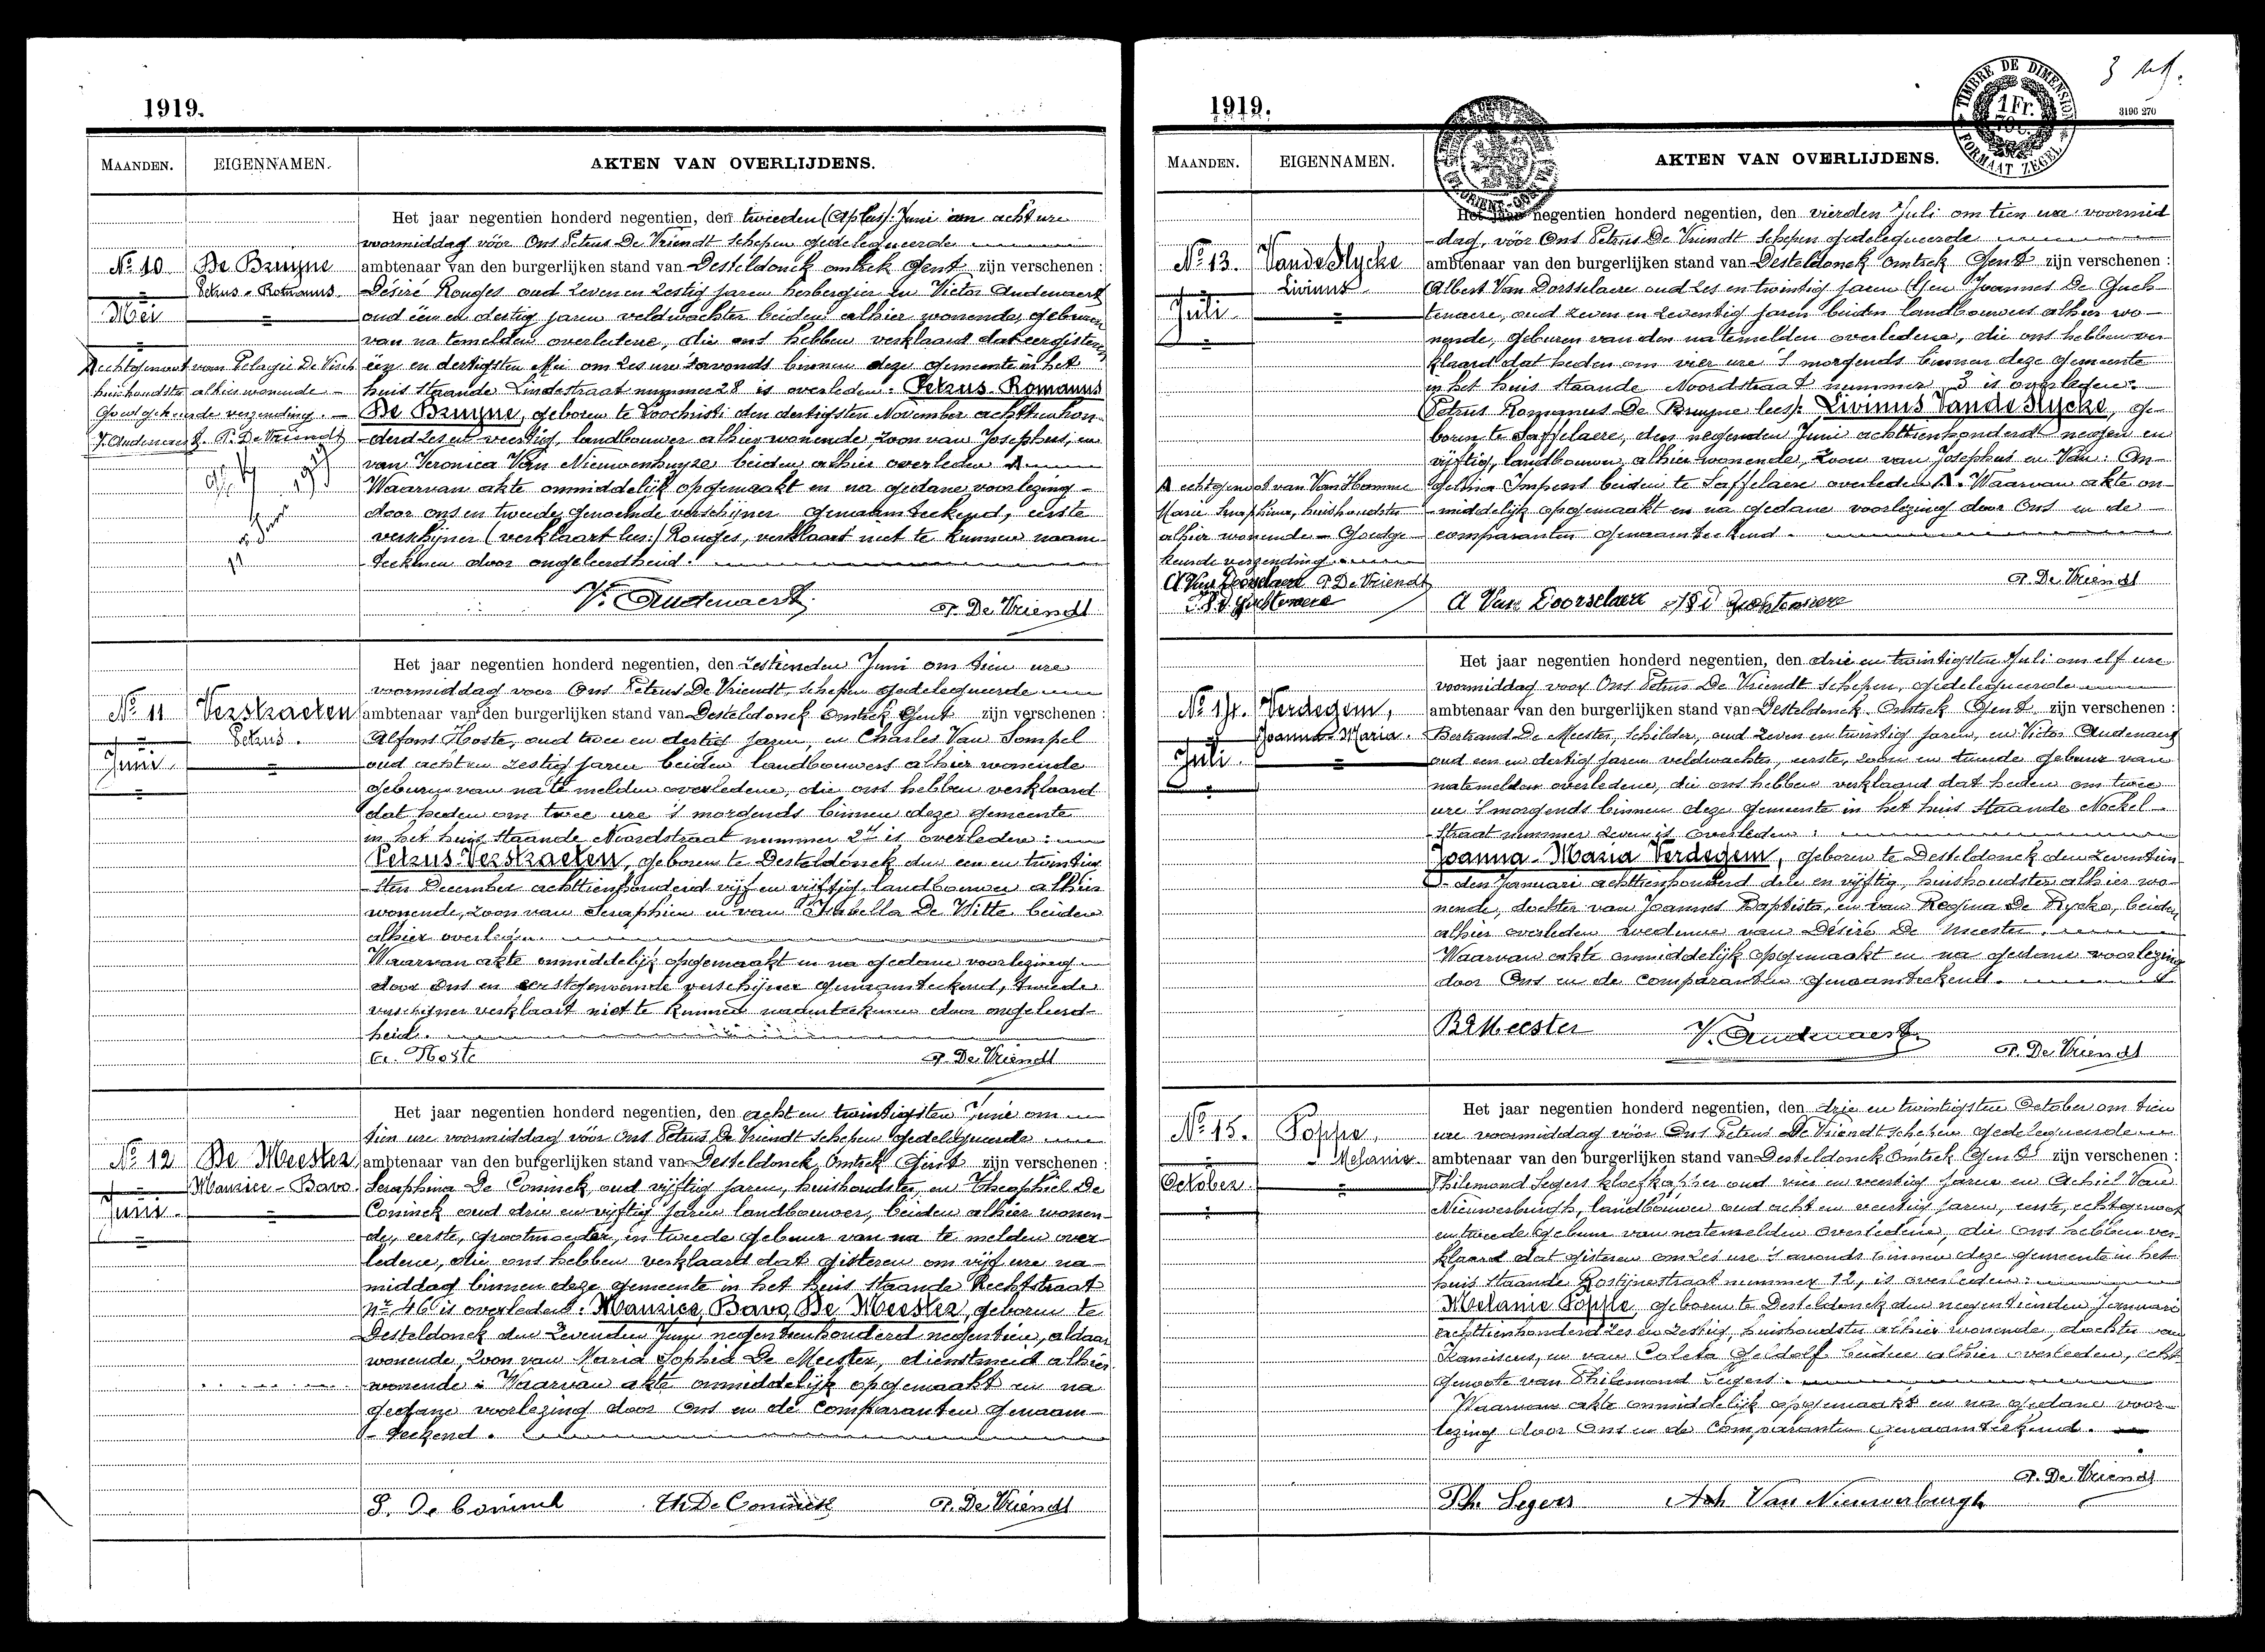 1919.
MAANDEN. EIGENNAMEN. AKTEN VAN OVERLIJDENS.
Het jaar negentien honderd negentien, den tweeden Juni om acht ure
voormiddag vóór Ons Petrus De Vriendt Schepen gedelegueerde
No 10 De Bruyne ambtenaar van den burgerlijken stand van Desteldonck omtrek Gent zijn verschenen :
Petrus-Romanus Désiré Rouges oud zeven en zestig jaren herbergier en Victor Audenaert
Mei oud een en dertig jaren veldwachter beiden alhier wonende, geburen
van na temelden overledene, die ons hebben verklaard dat eergisteren
Aechtgenoot van Pelagie De één en dertigsten Mei om zes ure 's avonds binnen deze gemeente in het
huishoudster alhier wonende huis staande Lindestraat nummer 28 is overleden: Petrus Romanus
Goedgekeurde verzending. De Bruyne, geboren te Loochristi den dertigsten November achttienhon-
V. Audenaert. P. De Vriendt derd zes en veertig, landbouwer alhier wonende, zoon van Josephus, en
van Veronica Van Nieuwenhuyze beiden alhier overleden A
Waarvan akte onmiddelijk opgemaakt en na gedane voorlezing
door ons en tweede genoemde verschijner genaamteekend, eerste
verschijner (verklaart lees:) Rouges, verklaart niet te kunnen naam
teekenen door ongeleerdheid.
V. Audenaert P. De Vriendt
Het jaar negentien honderd negentien, den zestienden Juni om tien ure
voormiddag voor Ons Petrus De Vriendt, Schepen gedelegueerde
No 11 Verstraeten ambtenaar van den burgerlijken stand van Desteldonck Omtrek Gent zijn verschenen :
Petrus. Alfons Hoste, oud twee en dertig jaren, en Charles Van Sompel
Juni oud acht en zestig jaren beiden landbouwers alhier wonende
geburen van na te melden overledene, die ons hebben verklaard
dat heden om twee ure 's morgends binnen deze gemeente
in het huis staande Noordstraat nummer 2 is overleden:
Petrus Verstraeten, geboren te Desteldonck den een en twintig
sten December achttienhonderd vijf en vijftig landbouwer alhier
wonende, zoon van Seraphien en van Isabella De Witte beiden
alhier overleden.
Waarvan akte onmiddelijk opgemaakt en na gedane voorlezing
door Ons en eerstgenoemde verschijner genaamteekend, tweede
verschijner verklaart niet te kunnen naamteekenen door ongeleerd-
heid.
A. Hoste P. De Vriendt
Het jaar negentien honderd negentien, den acht en twintigsten Juni om
tien ure voormiddag vóór Ons Petrus De Vriendt Schepen gedelegueerde
No 12 De Meester ambtenaar van den burgerlijken stand van Desteldonck Omtrek Gent zijn verschenen :
Maurice-Bavo. Seraphina De Coninck, oud vijftig jaren, huishoudster, en Theophiel De
Juni Coninck oud drie en vijftig jaren landbouwer, beiden alhier wonen-
de, eerste, grootmoeder, en tweede gebuur van na te melden over-
ledene, die ons hebben verklaard dat gisteren om vijf ure na-
middag binnen deze gemeente in het huis staande Rechtstraat
No 46 is overleden. Maurice, Bavo De Meester, geboren te
Desteldonck den zevenden Juni negentienhonderd negentien, aldaar
wonende, zoon van Maria Sophia De Meester, dienstmeid alhier
wonende. Waarvan akte onmiddelijk opgemaakt en na
gedane voorlezing door Ons en de Comparanten genaam-
teekend.
S. De Coninck Th De Coninck P. De Vriendt
1919.
TIMBRE DE DIMENSION
1 Fr.
FORMAAT ZEGEL
3196 270
MAANDEN. EIGENNAMEN. AKTEN VAN OVERLIJDENS.
Het jaar negentien honderd negentien, den vierden Juli om tien ure voormid
dag, vóór Ons Petrus De Vriendt Schepen gedelegueerde
No 13. Vande Slycke ambtenaar van den burgerlijken stand van Desteldonck Omtrek Gent zijn verschenen :
Livinus Albert Van Dorsselaere oud zes en twintig jaren en Joannes De Gueh-
Juli tenaere, oud zeven en zeventig jaren beiden landbouwers alhier wo-
nende, geburen van den na temelden overledene, die ons hebben ver-
klaard dat heden om vier ure 's morgends binnen deze gemeente
in het huis staande Noordstraat nummer 3 is overleden:
Petrus Romanus De Bruyne lees: Livinus Vande Slycke, ge-
boren te Saffelaere, den negenden Juni achttienhonderd negen en
vijftig, landbouwer alhier wonende, zoon van Josephus en Van: An-
A echtgenoot van Van Hamme gelina Impens beiden te Saffelaere overleden A. Waarvan akte on-
Marie Seraphina, huishoudster middelijk opgemaakt en na gedane voorlezing door Ons en de
alhier wonende - Goedge- comparanten genaamteekend.
keurde verzending.
A Van Doorselaere P. De Vriendt P. De Vriendt
A Van Doorselaere
Het jaar negentien honderd negentien, den drie en twintigsten Juli om elf ure
voormiddag voor Ons Petrus De Vriendt Schepen, gedelegueerde
No 14. Verdegem, ambtenaar van den burgerlijken stand van Desteldonck Omtrek Gent zijn verschenen :
Joanna Maria. Bertrand De Meester, Schilder, oud zeven en twintig jaren, en Victor Audenaert
Juli oud een en dertig jaren veldwachter, eerste, zoon en tweede gebuur van
natemelden overledene, die ons hebben verklaard dat heden om twee
ure 's morgends binnen deze gemeente in het huis staande Neckel-
straat nummer zeven is overleden:
Joanna-Maria Verdegem, geboren te Desteldonck den zeventien-
den Januari achttienhonderd drie en vijftig, huishoudster alhier wo-
nende, dochter van Joannes Baptista, en van Regina De Rycke, beiden
alhier overleden weduwe van Désiré De Meester.
Waarvan akte onmiddelijk opgemaakt en na gedane voorlezing
door Ons en de Comparanten genaamteekend.
B De Meester V. Audenaert P. De Vriendt
Het jaar negentien honderd negentien, den drie en twintigsten October om tien
ure voormiddag vóór Ons Petrus De Vriendt Schepen gedelegueerde
No 15. Poppe, ambtenaar van den burgerlijken stand van Desteldonck Omtrek Gent zijn verschenen :
Melanie. Philemond Segers oud vier en veertig jaren en Achiel Van
October Nieuwerburgh, landbouwer oud acht en veertig jaren, eerste, echtgenoot
en tweede gebuur van natemelden overledene, die Ons hebben ver-
klaard dat gisteren om zes ure 's avonds binnen deze gemeente in het
huis staande Rostijnestraat nummer 12, is overleden:
Melanie Poppe, geboren te Desteldonck den negentienden Januari
achttienhonderd zes en zestig, huishoudster alhier wonende, dochter van
Franciscus, en van Coleta Geldolf beiden alhier overleden, echt-
genoote van Philemond Segers.
Waarvan akte onmiddelijk opgemaakt en na gedane voor-
lezing door Ons en de Comparanten genaamteekend.
P. De Vriendt
Ph. Segers Ach Van Nieuwerburgh